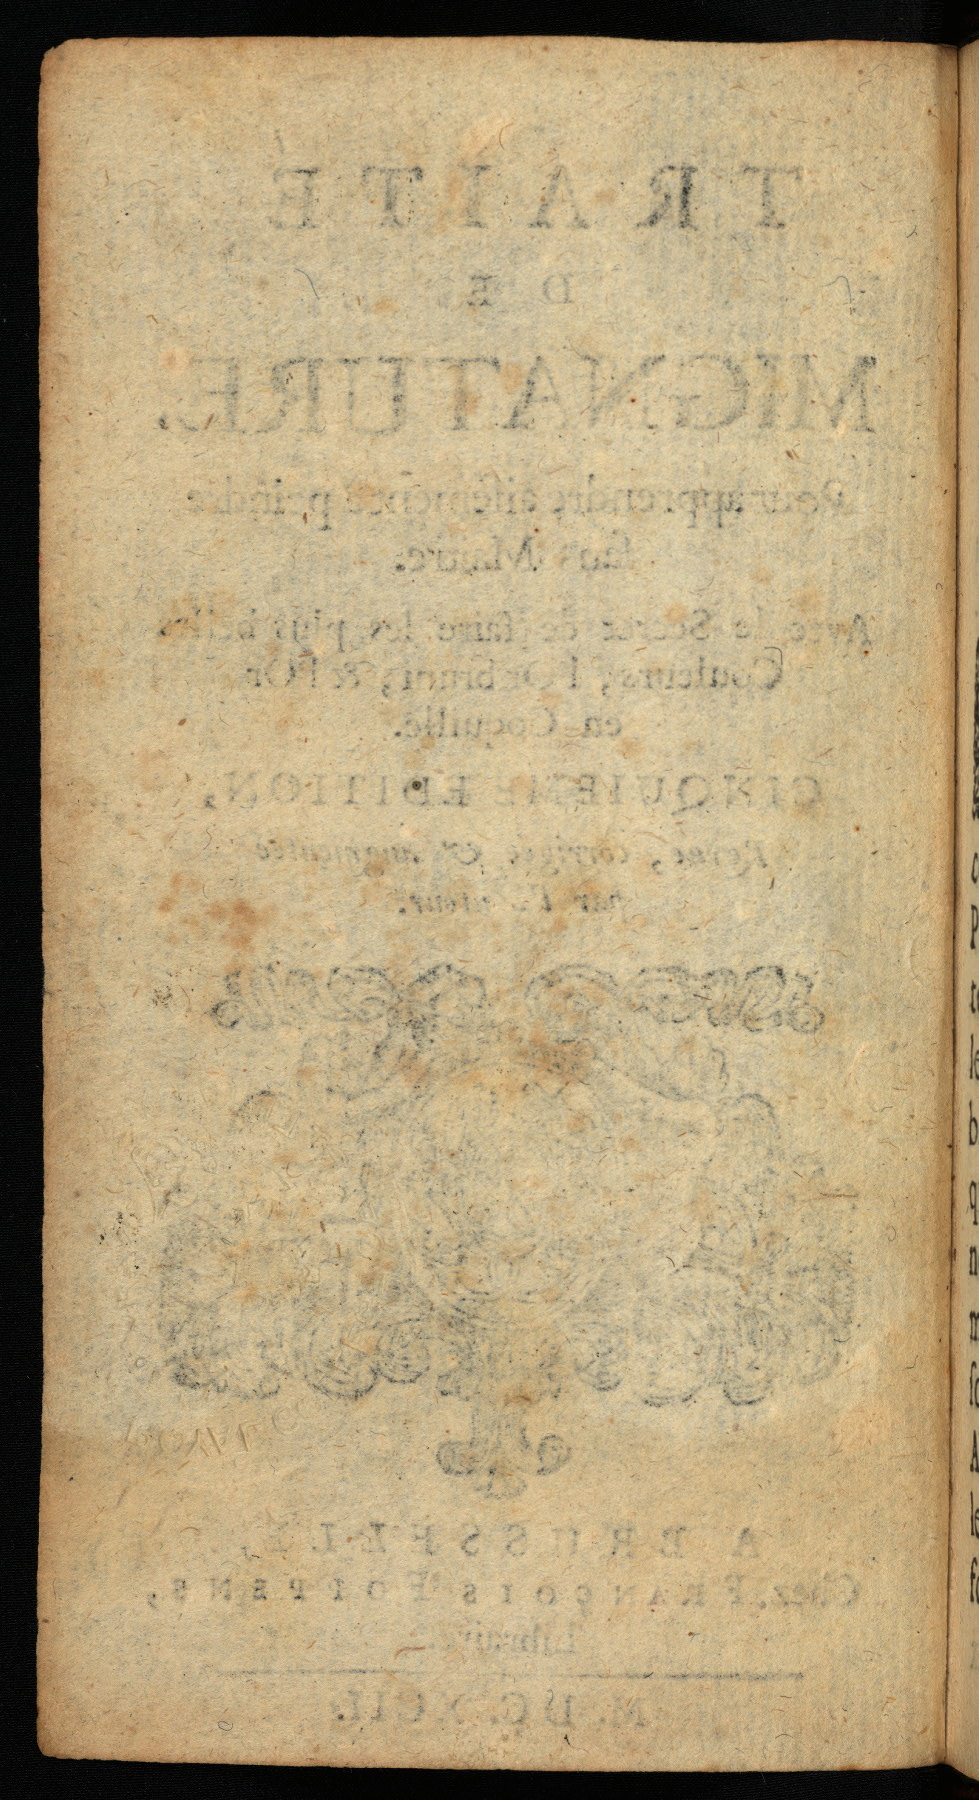 TRAITE
DE
MIGNATURE,
Pour apprendre aisément à peindre
sans Maître.
Avec le Secret de faire les plus belles
Couleurs, l'Or bruni, & l'Or
en Coquille.
CINQUIEME EDITION,
Reveuë, corrigée & augmentée
par l'Auteur.
A BRUSSELLE,
Chez FRANÇOIS FOPPENS,
Libraire
M. DC. XCII.